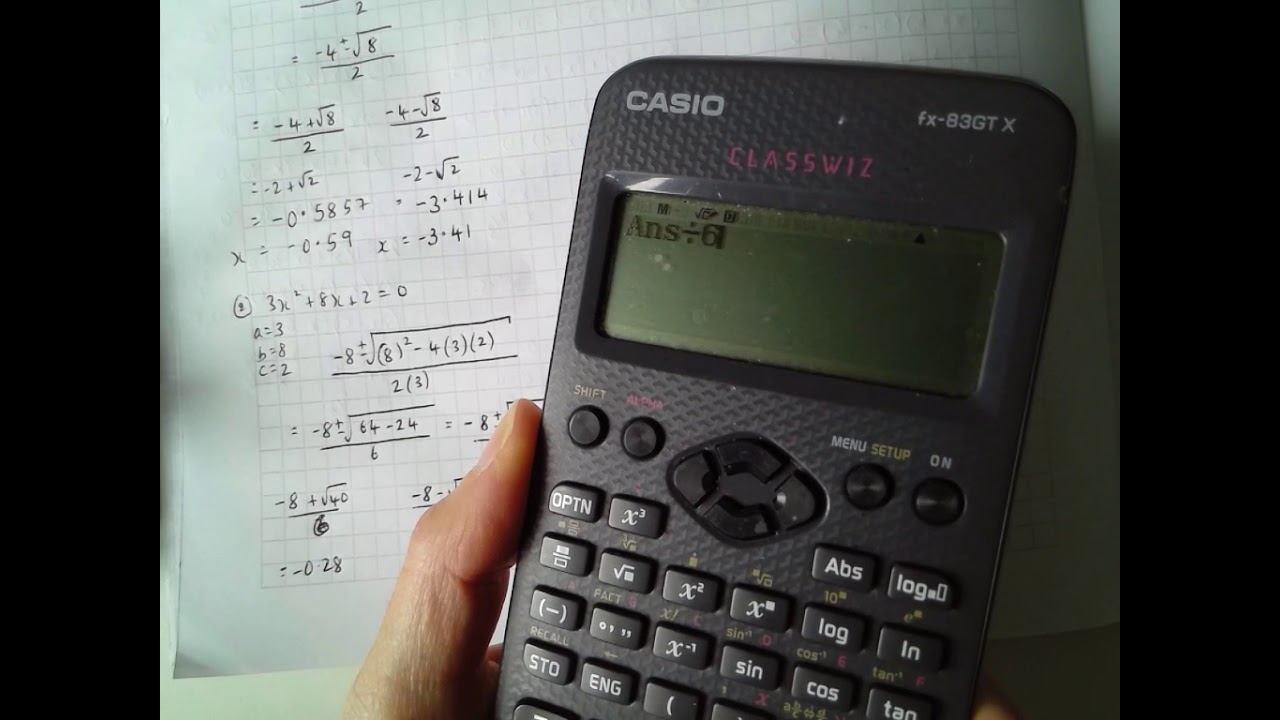 2
= -4±√8
2
= -4+√8 -4-√8
2 2
= -2+√2 -2-√2
= -0.5857 = -3.414
x = -0.59 x = -3.41
② 3x² + 8x + 2 = 0
a=3
b=8
c=2
-8±√(8)² - 4(3)(2)
2(3)
= -8±√64-24 = -8±√
6
-8+√40 -8-√
6
= -0.28
CASIO
fx-83GT X
CLASSWIZ
M √ D ▲
Ans÷6
SHIFT ALPHA MENU SETUP ON
OPTN x³ Abs log
√ x² x■ log ln
10■ e■
(−) FACT x⁻¹ sin cos tan
RECALL sin⁻¹ D cos⁻¹ E tan⁻¹ F
STO ENG (